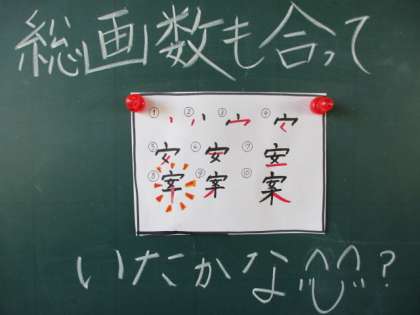 総画数も合って
① ② ③ ④
⑤ 安 ⑥ 安 ⑦ 安
⑧ ⑨ ⑩ 案
いたかな?